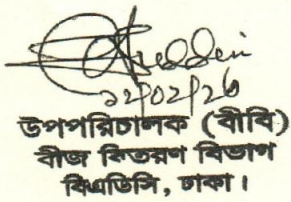 ১২/০২/২৬
উপপরিচালক (বীবি)
বীজ বিতরণ বিভাগ
বিএডিসি, ঢাকা।